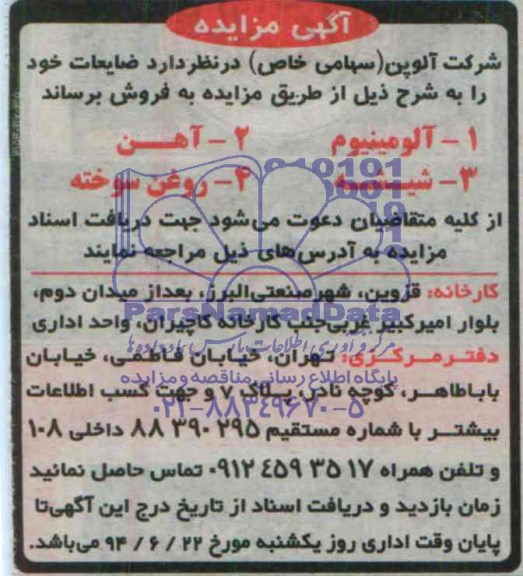 آگهی مزایده
شرکت آلوپن(سهامی خاص) درنظردارد ضایعات خود
را به شرح ذیل از طریق مزایده به فروش برساند
۱- آلومینیوم ۲- آهن
۳- شیشه ۴- روغن سوخته
از کلیه متقاضیان دعوت می‌شود جهت دریافت اسناد
مزایده به آدرس‌های ذیل مراجعه نمایند
کارخانه: قزوین، شهرصنعتی‌البرز، بعداز میدان دوم،
بلوار امیرکبیر غربی‌جنب کارخانه کاچیران، واحد اداری
ParsNamadData
مرکز فرآوری اطلاعات پارس نماد داده‌ها
دفترمرکزی: تهران، خیابان فاطمی، خیابان
پایگاه اطلاع رسانی مناقصه و مزایده
باباطاهر، کوچه نادر، پلاک ۷ و جهت کسب اطلاعات
۰۲۱-۸۸۳۴۹۶۷۰-۵
بیشتر با شماره مستقیم ۸۸۳۹۰۲۹۵ داخلی ۱۰۸
و تلفن همراه ۰۹۱۲۴۵۹۳۵۱۷ تماس حاصل نمائید
زمان بازدید و دریافت اسناد از تاریخ درج این آگهی‌تا
پایان وقت اداری روز یکشنبه مورخ ۹۴/۶/۲۲ می‌باشد.